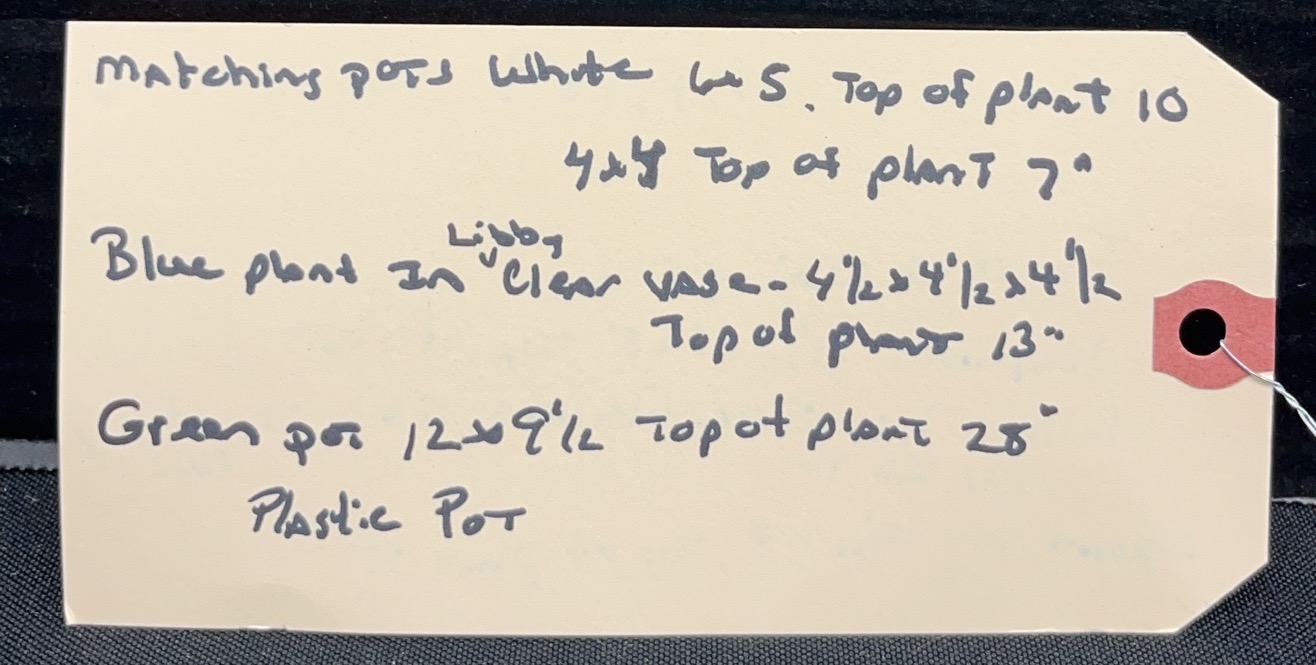 Matching pots white 6x5. Top of plant 10
4x4 Top of plant 7"
Blue plant In Libby Clear vase - 4 1/2 x 4 1/2 x 4 1/2
Top of plant 13"
Green pot 12x9 1/2 Top of plant 28"
Plastic Pot